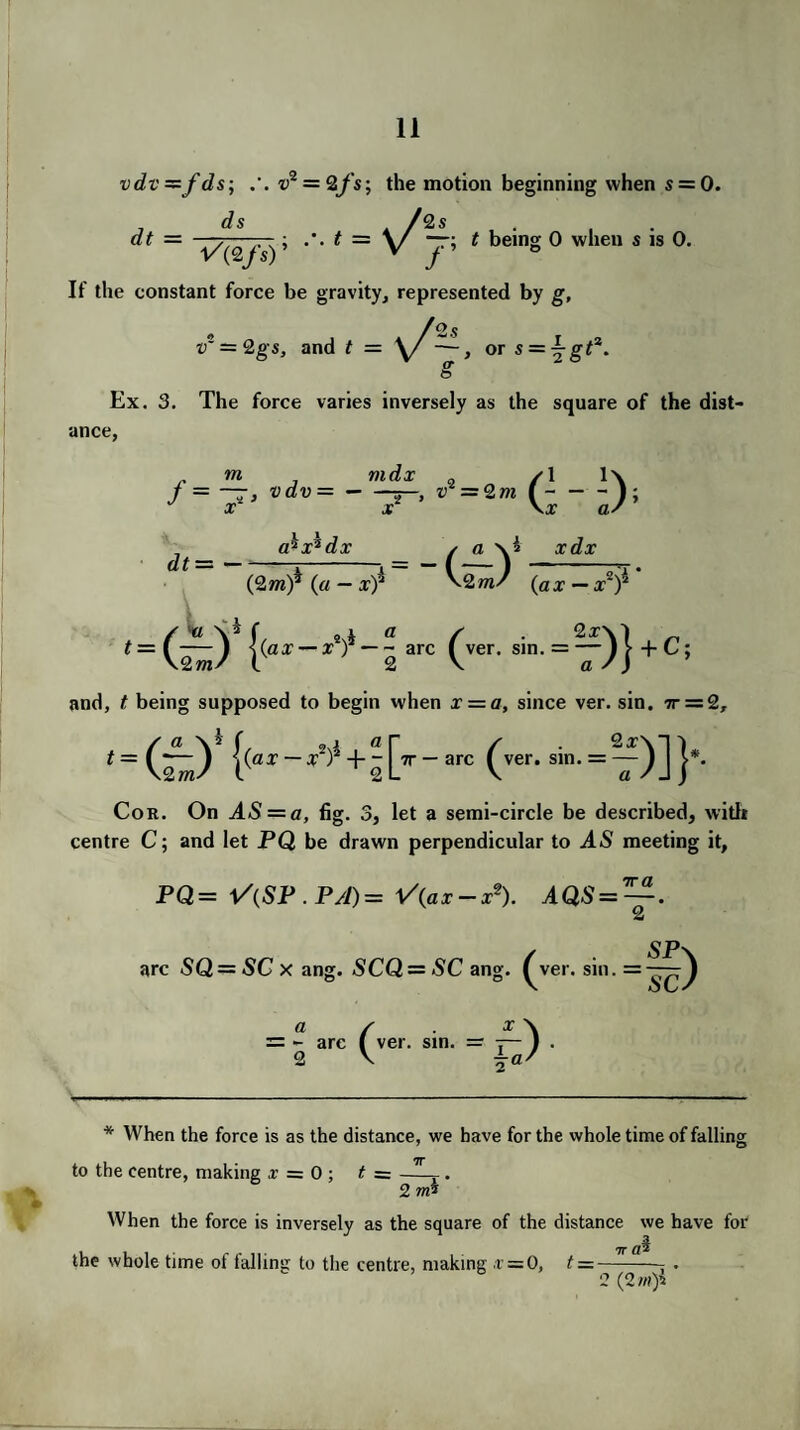 11
vdv = fds; ∴ v² = 2fs; the motion beginning when s = 0.
dt = ds/√(2fs); ∴ t = √(2s/f); t being 0 when s is 0.
If the constant force be gravity, represented by g,
v² = 2gs, and t = √(2s/g), or s = ½gt².
Ex. 3. The force varies inversely as the square of the dist-
ance,
f = m/x², vdv = − mdx/x², v² = 2m (1/x − 1/a);
dt = − a^½ x^½ dx/((2m)^½ (a − x)^½) = − (a/2m)^½ xdx/(ax − x²)^½.
t = (a/2m)^½ {(ax − x²)^½ − a/2 arc (ver. sin. = 2x/a)} + C;
and, t being supposed to begin when x = a, since ver. sin. π = 2,
t = (a/2m)^½ {(ax − x²)^½ + a/2 [π − arc (ver. sin. = 2x/a)]}*.
Cor. On AS = a, fig. 3, let a semi-circle be described, with
centre C; and let PQ be drawn perpendicular to AS meeting it,
PQ = √(SP . PA) = √(ax − x²). AQS = πa/2.
arc SQ = SC x ang. SCQ = SC ang. (ver. sin. = SP/SC)
= a/2 arc (ver. sin. = x/½a).
* When the force is as the distance, we have for the whole time of falling
to the centre, making x = 0; t = π/2m^½.
When the force is inversely as the square of the distance we have for
the whole time of falling to the centre, making x = 0, t = πa^(3/2)/2(2m)^½.